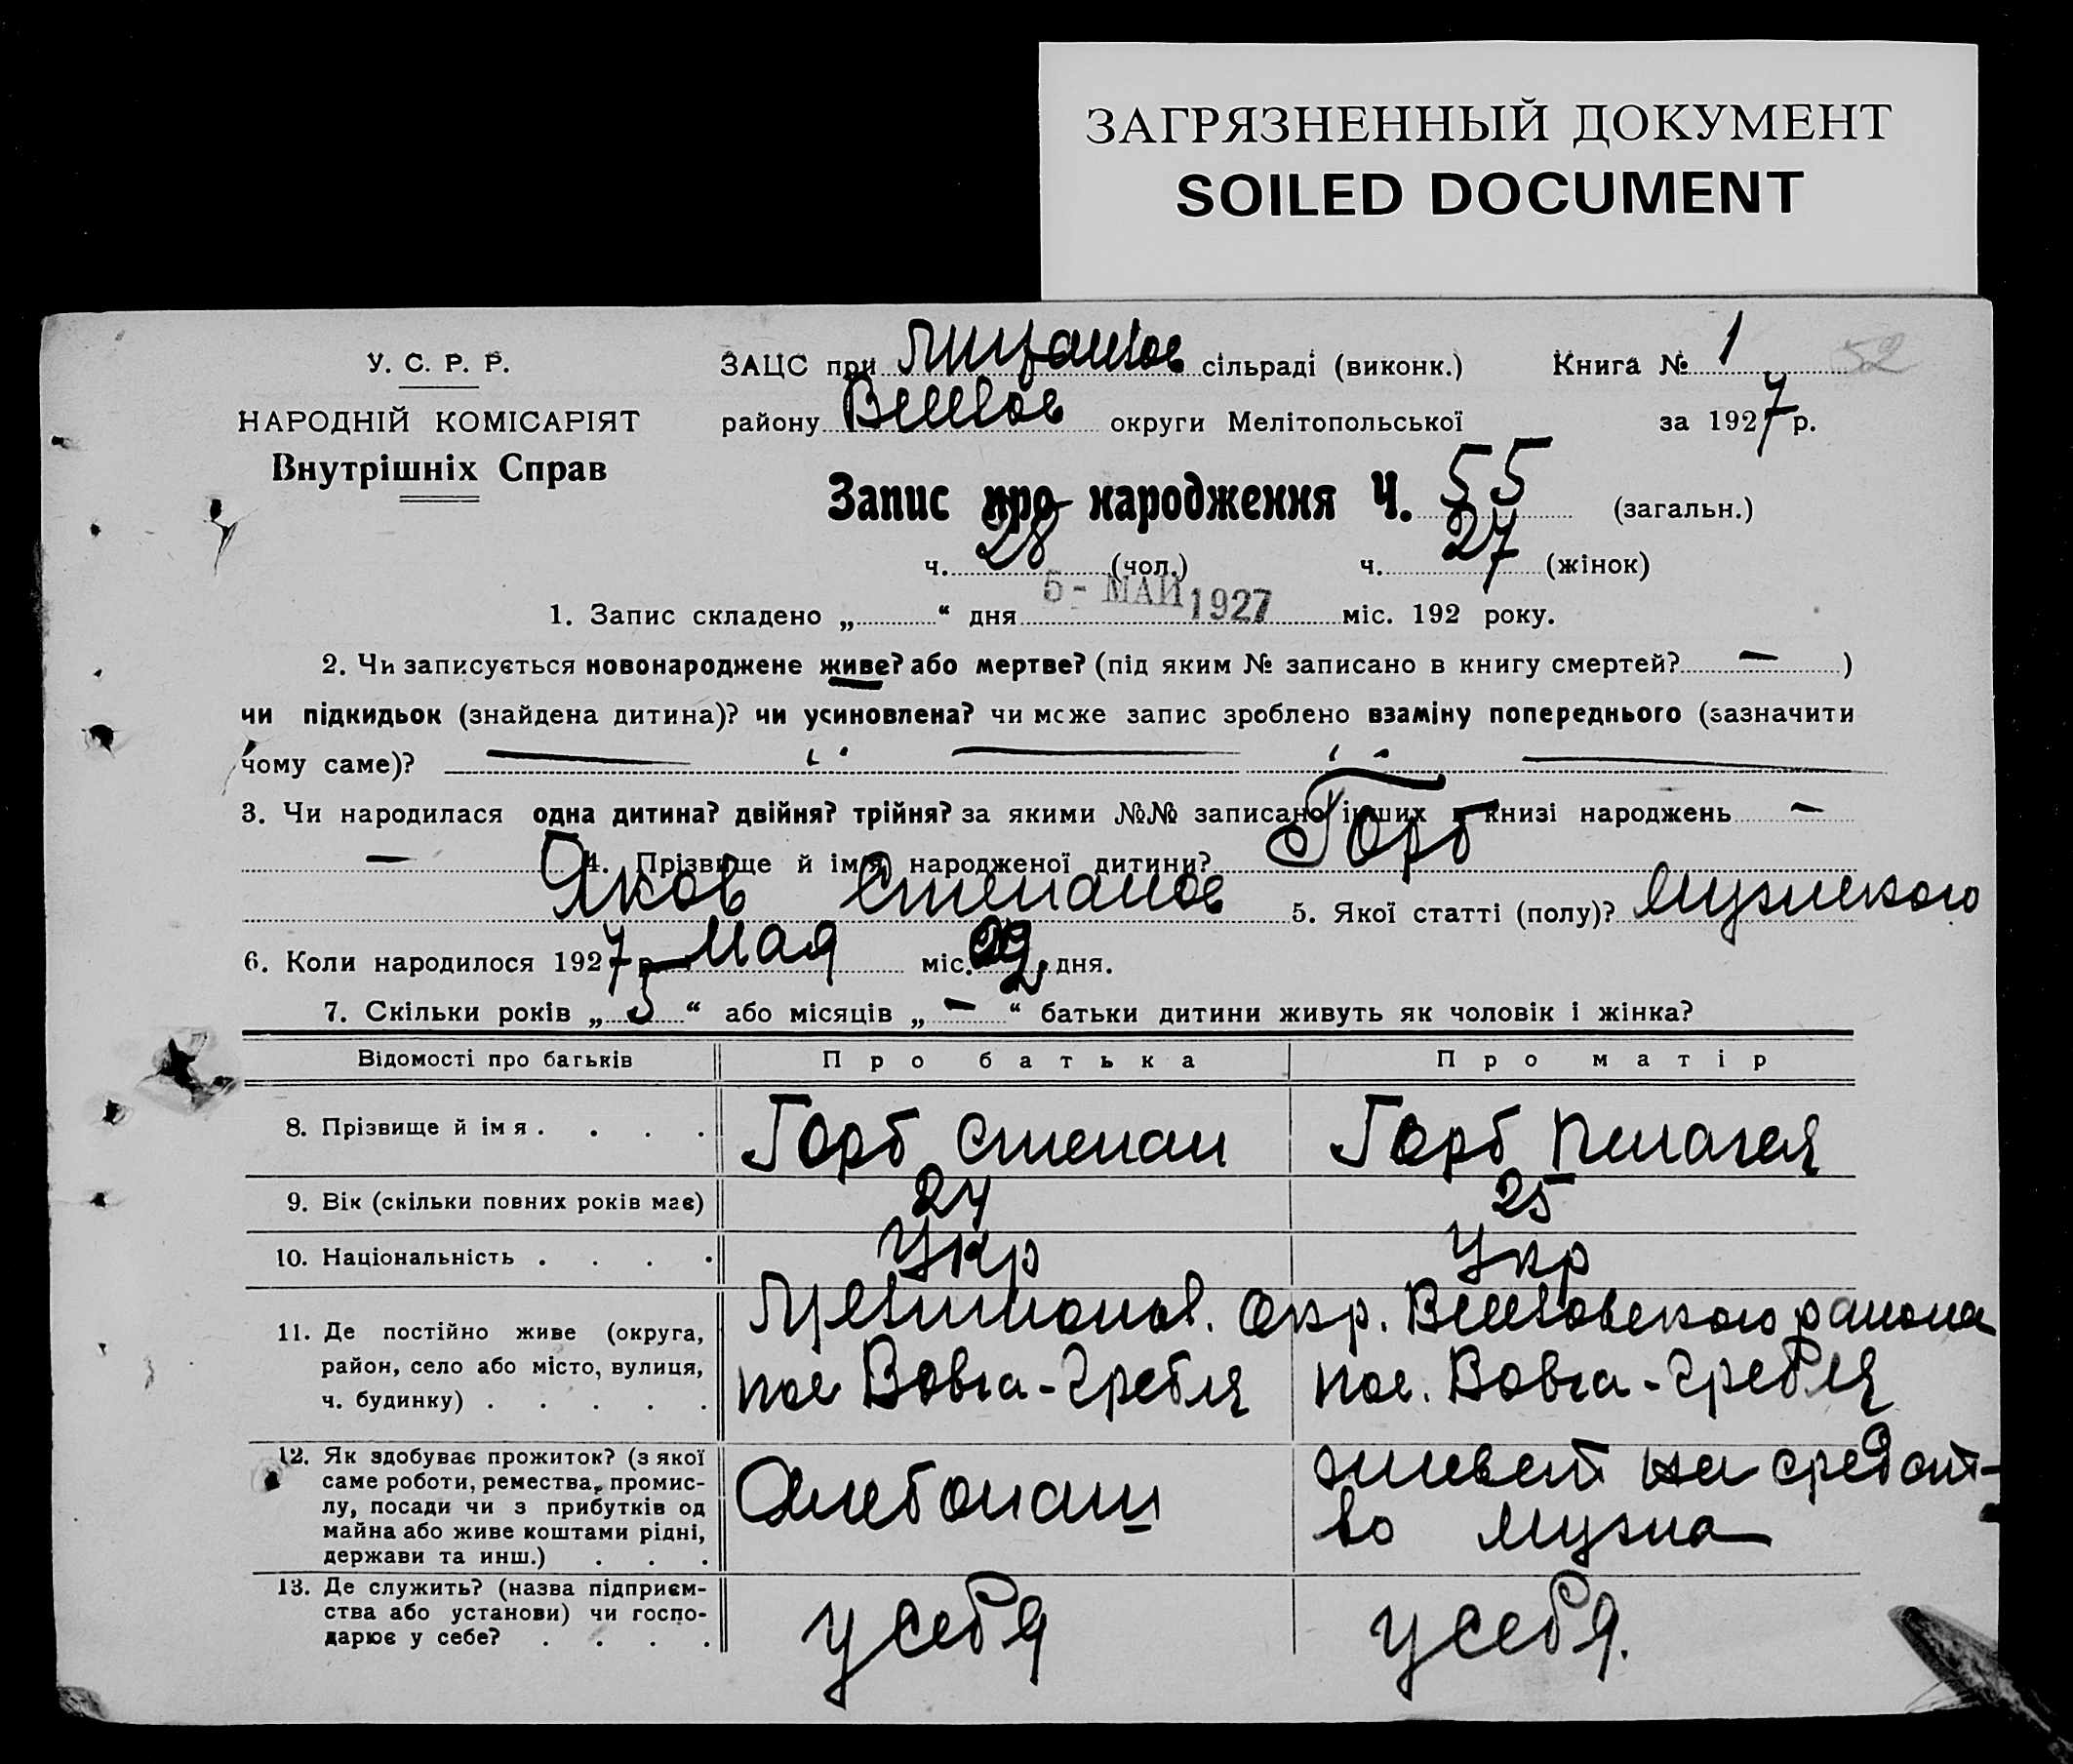 ЗАГРЯЗНЕННЫЙ ДОКУМЕНТ
SOILED DOCUMENT
У. С. Р. Р.
НАРОДНІЙ КОМІСАРІЯТ
Внутрішніх Справ
ЗАЦС при сільраді (виконк.) Книга № 1 52
району округи Мелітопольської за 1927 р.
Запис про народження Ч. 55 (загальн.)
ч. 28 (чол.) ч. 27 (жінок)
1. Запис складено „ “ дня 5 - МАЙ 1927 міс. 192 року.
2. Чи записується новонароджене живе? або мертве? (під яким № записано в книгу смертей? — )
чи підкидьок (знайдена дитина)? чи усиновлена? чи може запис зроблено взаміну попереднього (зазначити
чому саме)?
3. Чи народилася одна дитина? двійня? трійня? за якими №№ записано інших в книзі народжень —
— 4. Прізвище й ім'я народженої дитини? Горб
Яков Степанов 5. Якої статті (полу)? Мужского
6. Коли народилося 1927 р. Мая міс. дня.
7. Скільки років „ 5 “ або місяців „ — “ батьки дитини живуть як чоловік і жінка?
Відомості про батьків Про батька Про матір
8. Прізвище й імя . . . . Горб Степан Горб Пелагея
9. Вік (скільки повних років має) 24 25
10. Національність . . . . Укр Укр
11. Де постійно живе (округа, район, село або місто, вулиця, ч. будинку) . . . . . Окр. Веселовского района
пос Вовча-Гребля пос. Вовча-Гребля
12. Як здобуває прожиток? (з якої саме роботи, ремества, промислу, посади чи з прибутків од майна або живе коштами рідні, держави та инш.) . . . Хлебопаш живет на средст-
во мужа
13. Де служить? (назва підприємства або установи) чи господарює у себе? . . . . у себя у себя.